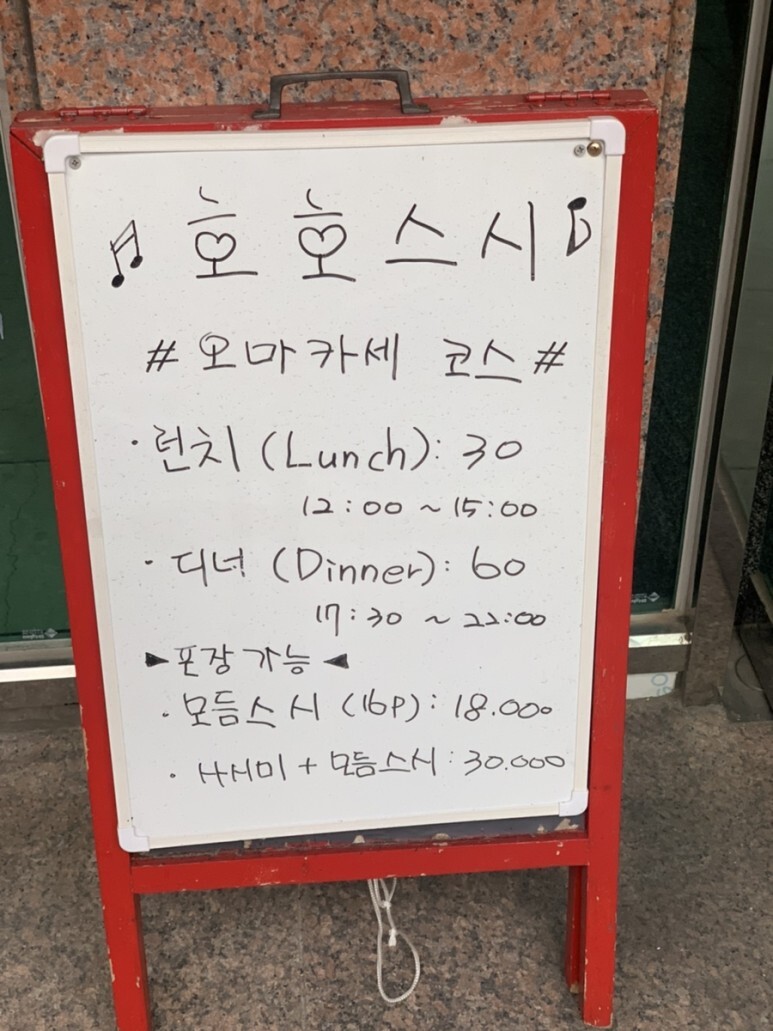 호호스시
# 오마카세 코스 #
· 런치 (Lunch): 30
12:00 ~ 15:00
· 디너 (Dinner): 60
17:30 ~ 22:00
▶포장 가능◀
· 모듬스시 (16P): 18.000
· 사시미 + 모듬스시: 30.000